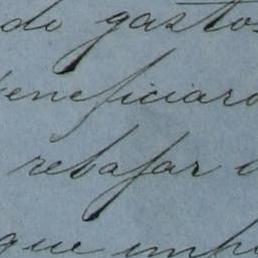 do gastos
beneficiaro
rebajar
que imp